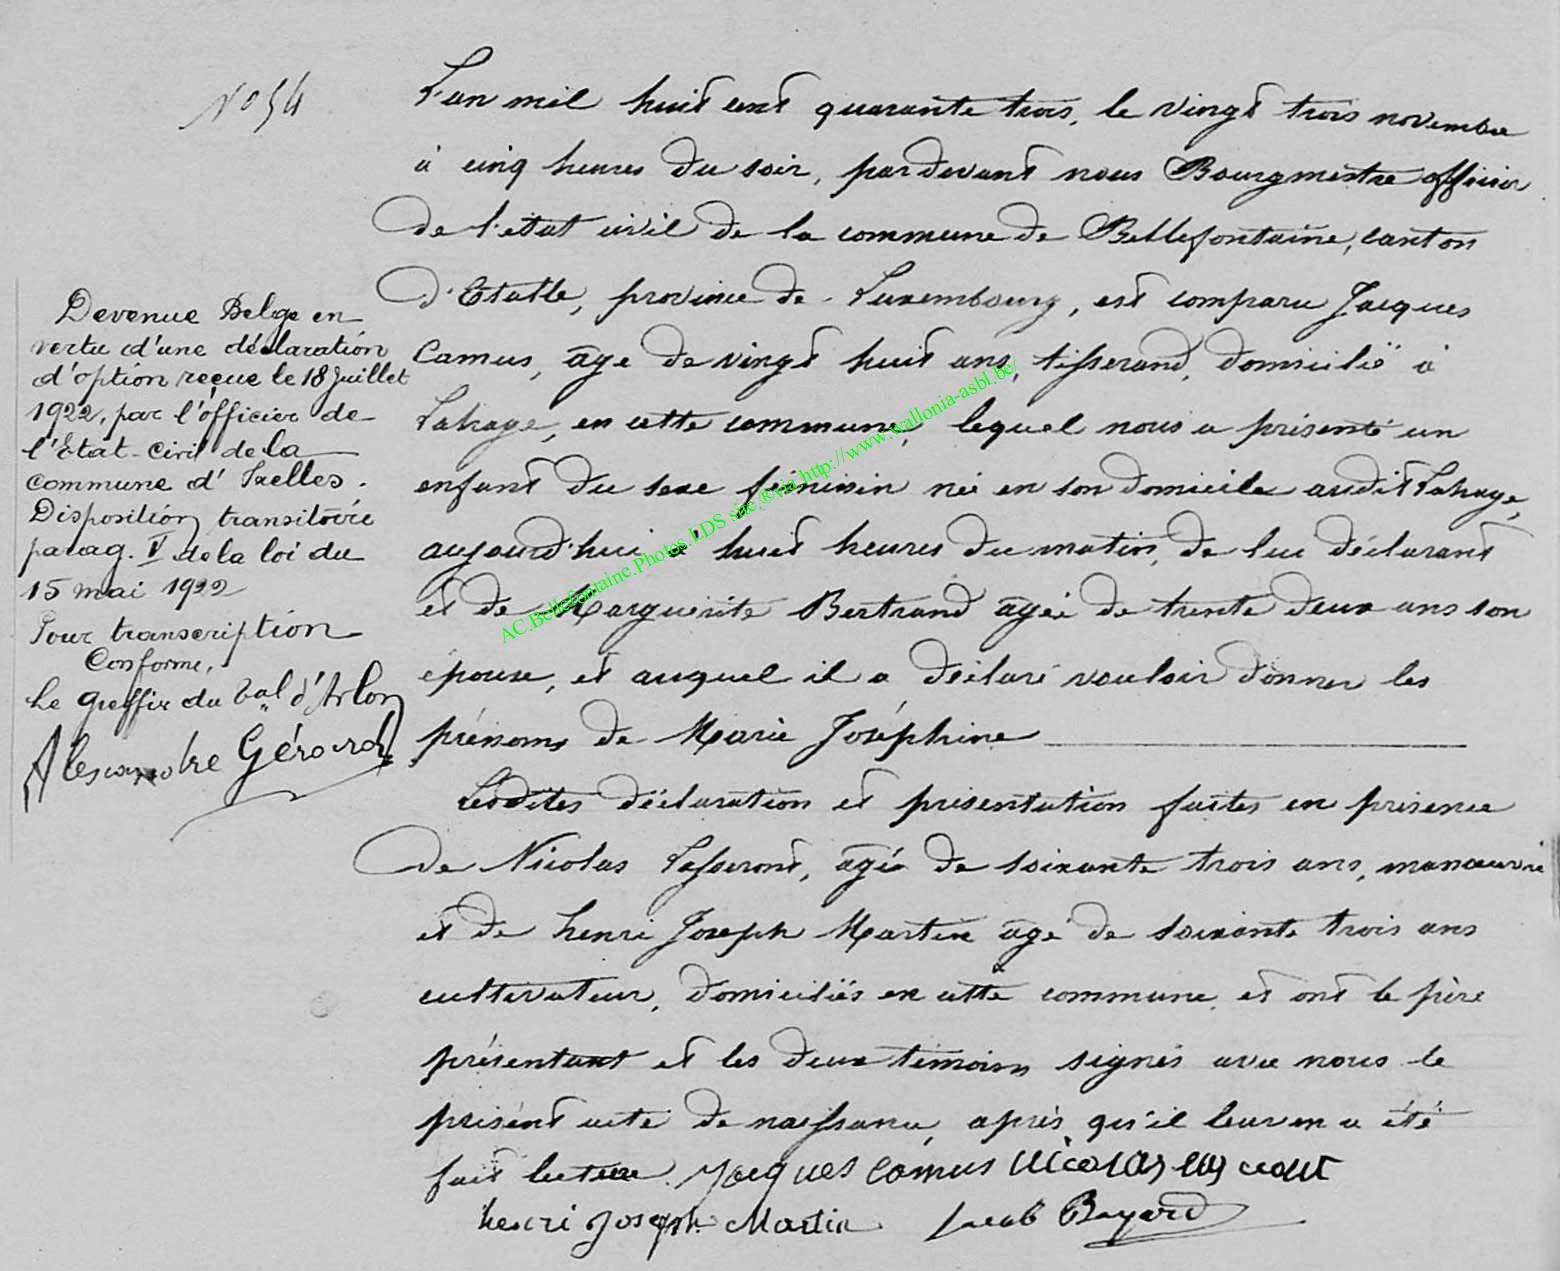 N° 54
L'an mil huit cent quarante trois, le vingt trois novembre
à cinq heures du soir, pardevant nous Bourgmestre officier
de l'etat civil de la commune de Bellefontaine, canton
d'Etalle, province de Luxembourg, est comparu Jacques
Camus, âgé de vingt huit ans, tisserand, domicilié à
Lahage, en cette commune, lequel nous a présenté un
enfant du sexe féminin né en son domicile audit Lahage,
aujourd'hui à huit heures du matin, de lui déclarant
et de Marguerite Bertrand agée de trente deux ans son
épouse, et auquel il a déclaré vouloir donner les
prénoms de Marie Joséphine
Lesdites déclaration et présentation faites en présence
de Nicolas, âgé de soixante trois ans, manœuvre
et de henri Joseph Martin âgé de soixante trois ans
cultivateur, domiciliés en cette commune, et ont le père
présentant et les deux témoins signés avec nous le
présent acte de naissance, après qu'il leur en a été
fait lecture. jacques camus nicolas
henri joseph Martin Jacob Bayard
Devenue Belge en
vertu d'une déclaration
d'option reçue le 18 Juillet
1922, par l'officier de
l'Etat-Civil de la
commune d'Ixelles.
Disposition transitoire
parag. V de la loi du
15 mai 1922
Pour transcription
Conforme,
Le greffier du Bal d'Arlon
Alexandre Gérard
AC.Bellefontaine.Photos LDS site ® via http://www.wallonia-asbl.be/